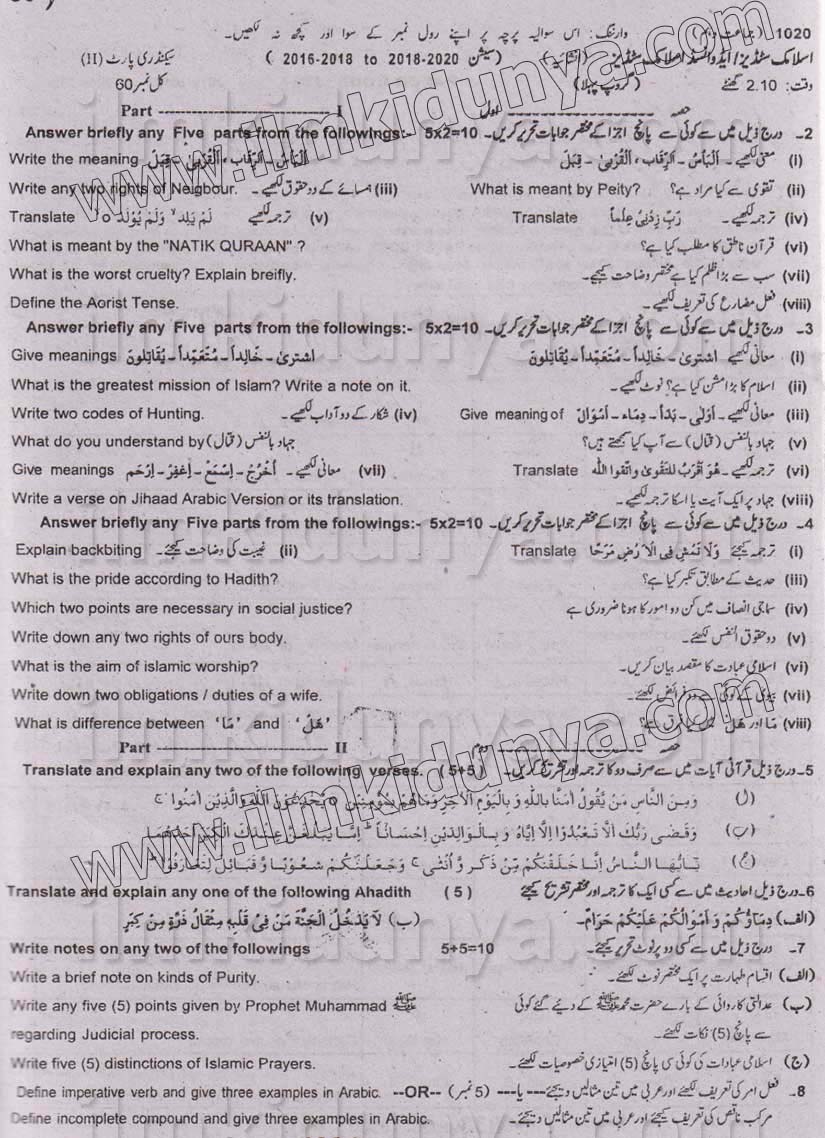 1020 (جماعت دہم) وارننگ: اس سوالیہ پرچہ پر اپنے رول نمبر کے سوا اور کچھ نہ لکھیں۔
اسلامک سٹڈیز/ایڈوانسڈ اسلامک سٹڈیز (انشائیہ) (سیشن 2016-2018 to 2018-2020) سیکنڈری پارٹ (II)
وقت: 2.10 گھنٹے (گروپ پہلا) کل نمبر 60
Part ------------------- I حصہ ------------------- اول
2۔ درج ذیل میں سے کوئی سے پانچ اجزا کے مختصر جوابات تحریر کریں۔ 5x2=10 Answer briefly any Five parts from the followings:-
(i) معنی لکھیے۔ اَلْبَأْسُ۔ اَلرِّقَاب، اَلْقُرْبیٰ۔ قِبَلَ Write the meaning اَلْبَأْسُ۔ اَلرِّقَاب، اَلْقُرْبیٰ۔ قِبَلَ
(ii) تقویٰ سے کیا مراد ہے؟ What is meant by Peity? (iii) ہمسائے کے دو حقوق لکھیے۔ Write any two rights of Neigbour.
(iv) ترجمہ لکھیے۔ رَبِّ زِدْنِیْ عِلْماً Translate (v) ترجمہ لکھیے لَمْ یَلِدْ وَلَمْ یُوْلَدْ Translate
(vi) قرآن ناطق کا مطلب کیا ہے؟ What is meant by the "NATIK QURAAN" ?
(vii) سب سے بڑا ظلم کیا ہے مختصر وضاحت کیجیے۔ What is the worst cruelty? Explain breifly.
(viii) فعل مضارع کی تعریف لکھیے۔ Define the Aorist Tense.
3۔ درج ذیل میں سے کوئی سے پانچ اجزا کے مختصر جوابات تحریر کریں۔ 5x2=10 Answer briefly any Five parts from the followings:-
(i) معانی لکھیے اشتریٰ۔ خَالِداً۔ مُتَعَمِّداً۔ یُقَاتِلُوْنَ Give meanings اشتریٰ۔ خَالِداً۔ مُتَعَمِّداً۔ یُقَاتِلُوْنَ
(ii) اسلام کا بڑا مشن کیا ہے؟ نوٹ لکھیے۔ What is the greatest mission of Islam? Write a note on it.
(iii) معانی لکھیے۔ اَوْلٰی۔ بَدَأَ۔ دِماء۔ اَمْوَالٌ Give meaning of (iv) شکار کے دو آداب لکھیے۔ Write two codes of Hunting.
(v) جہاد بالنفس (قتال) سے آپ کیا سمجھتے ہیں؟ What do you understand by جہاد بالنفس (قتال)
(vi) ترجمہ لکھیے۔ هُوَ اَقْرَبُ لِلتَّقْویٰ واتقوا اللّٰہ Translate (vii) معانی لکھیے۔ اُخْرُجْ۔ اِسْمَعْ۔ اِغْفِرْ۔ اِرْحَم Give meanings
(viii) جہاد پر ایک آیت یا اسکا ترجمہ لکھیے۔ Write a verse on Jihaad Arabic Version or its translation.
4۔ درج ذیل میں سے کوئی سے پانچ اجزا کے مختصر جوابات تحریر کریں۔ 5x2=10 Answer briefly any Five parts from the followings:-
(i) ترجمہ کیجئے وَلَا تَمْشِ فِی الْاَرْضِ مَرَحًا Translate (ii) غیبت کی وضاحت کیجئے۔ Explain backbiting
(iii) حدیث کے مطابق تکبر کیا ہے؟ What is the pride according to Hadith?
(iv) سماجی انصاف میں کن دو امور کا ہونا ضروری ہے Which two points are necessary in social justice?
(v) دو حقوق النفس لکھئے۔ Write down any two rights of ours body.
(vi) اسلامی عبادت کا مقصد بیان کریں۔ What is the aim of islamic worship?
(vii) بیوی کے کوئی سے دو فرائض لکھئے۔ Write down two obligations / duties of a wife.
(viii) مَا اور هَلْ میں کیا فرق ہے؟ What is difference between ‘مَا’ and ‘هَلْ’
Part ------------------- II حصہ ------------------- دوم
5۔ درج ذیل قرآنی آیات میں سے صرف دو کا ترجمہ اور تشریح کریں۔ (5+5) Translate and explain any two of the following verses.
(ا) وَمِنَ النَّاسِ مَنْ یَّقُوْلُ اٰمَنَّا بِاللّٰهِ وَ بِالْیَوْمِ الْاٰخِرِ وَمَا هُمْ بِمُؤْمِنِیْنَ ۞ یُخٰدِعُوْنَ اللّٰهَ وَالَّذِیْنَ اٰمَنُوْا ۚ
(ب) وَقَضٰی رَبُّكَ اَلَّا تَعْبُدُوْٓا اِلَّآ اِیَّاهُ وَ بِالْوَالِدَیْنِ اِحْسَانًا ؕ اِمَّا یَبْلُغَنَّ عِنْدَكَ الْكِبَرَ اَحَدُهُمَآ
(ج) یٰٓاَیُّهَا النَّاسُ اِنَّا خَلَقْنٰكُمْ مِّنْ ذَكَرٍ وَّ اُنْثٰی وَجَعَلْنٰكُمْ شُعُوْبًا وَّ قَبَآئِلَ لِتَعَارَفُوْا ؕ
6۔ درج ذیل احادیث میں سے کسی ایک کا ترجمہ اور مختصر تشریح کیجئے (5) Translate and explain any one of the following Ahadith
(الف) دِمَاؤُكُمْ وَ اَمْوَالُكُمْ عَلَیْكُمْ حَرَامٌ۔ (ب) لَا یَدْخُلُ الْجَنَّةَ مَنْ فِیْ قَلْبِهٖ مِثْقَالُ ذَرَّةٍ مِنْ كِبْرٍ
7۔ درج ذیل میں سے کسی دو پر نوٹ تحریر کیجئے۔ 5+5=10 Write notes on any two of the followings
(الف) اقسام طہارت پر ایک مختصر نوٹ لکھئے۔ Write a brief note on kinds of Purity.
(ب) عدالتی کاروائی کے بارے حضرت محمدﷺ کے دیئے گئے کوئی Write any five (5) points given by Prophet Muhammad ﷺ
سے پانچ (5) نکات لکھئے۔ regarding Judicial process.
(ج) اسلامی عبادات کی کوئی سی پانچ (5) امتیازی خصوصیات لکھئے۔ Write five (5) distinctions of Islamic Prayers.
8۔ فعل امر کی تعریف لکھئے اور عربی میں تین مثالیں دیجئے ---یا--- (5 نمبر) --OR-- Define imperative verb and give three examples in Arabic.
مرکب ناقص کی تعریف کیجئے اور عربی میں تین مثالیں دیجئے۔ Define incomplete compound and give three examples in Arabic.
www.ilmkidunya.com
www.ilmkidunya.com
ilmkidunya.com
ilmkidunya.com